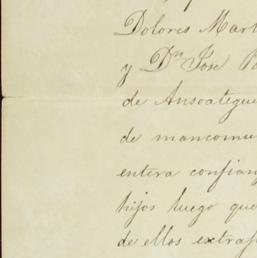 Dolores Mart
y Dn Jose Po
de Ansoategui
de mancomu
entera confian
hijos luego que
de ellos extraf